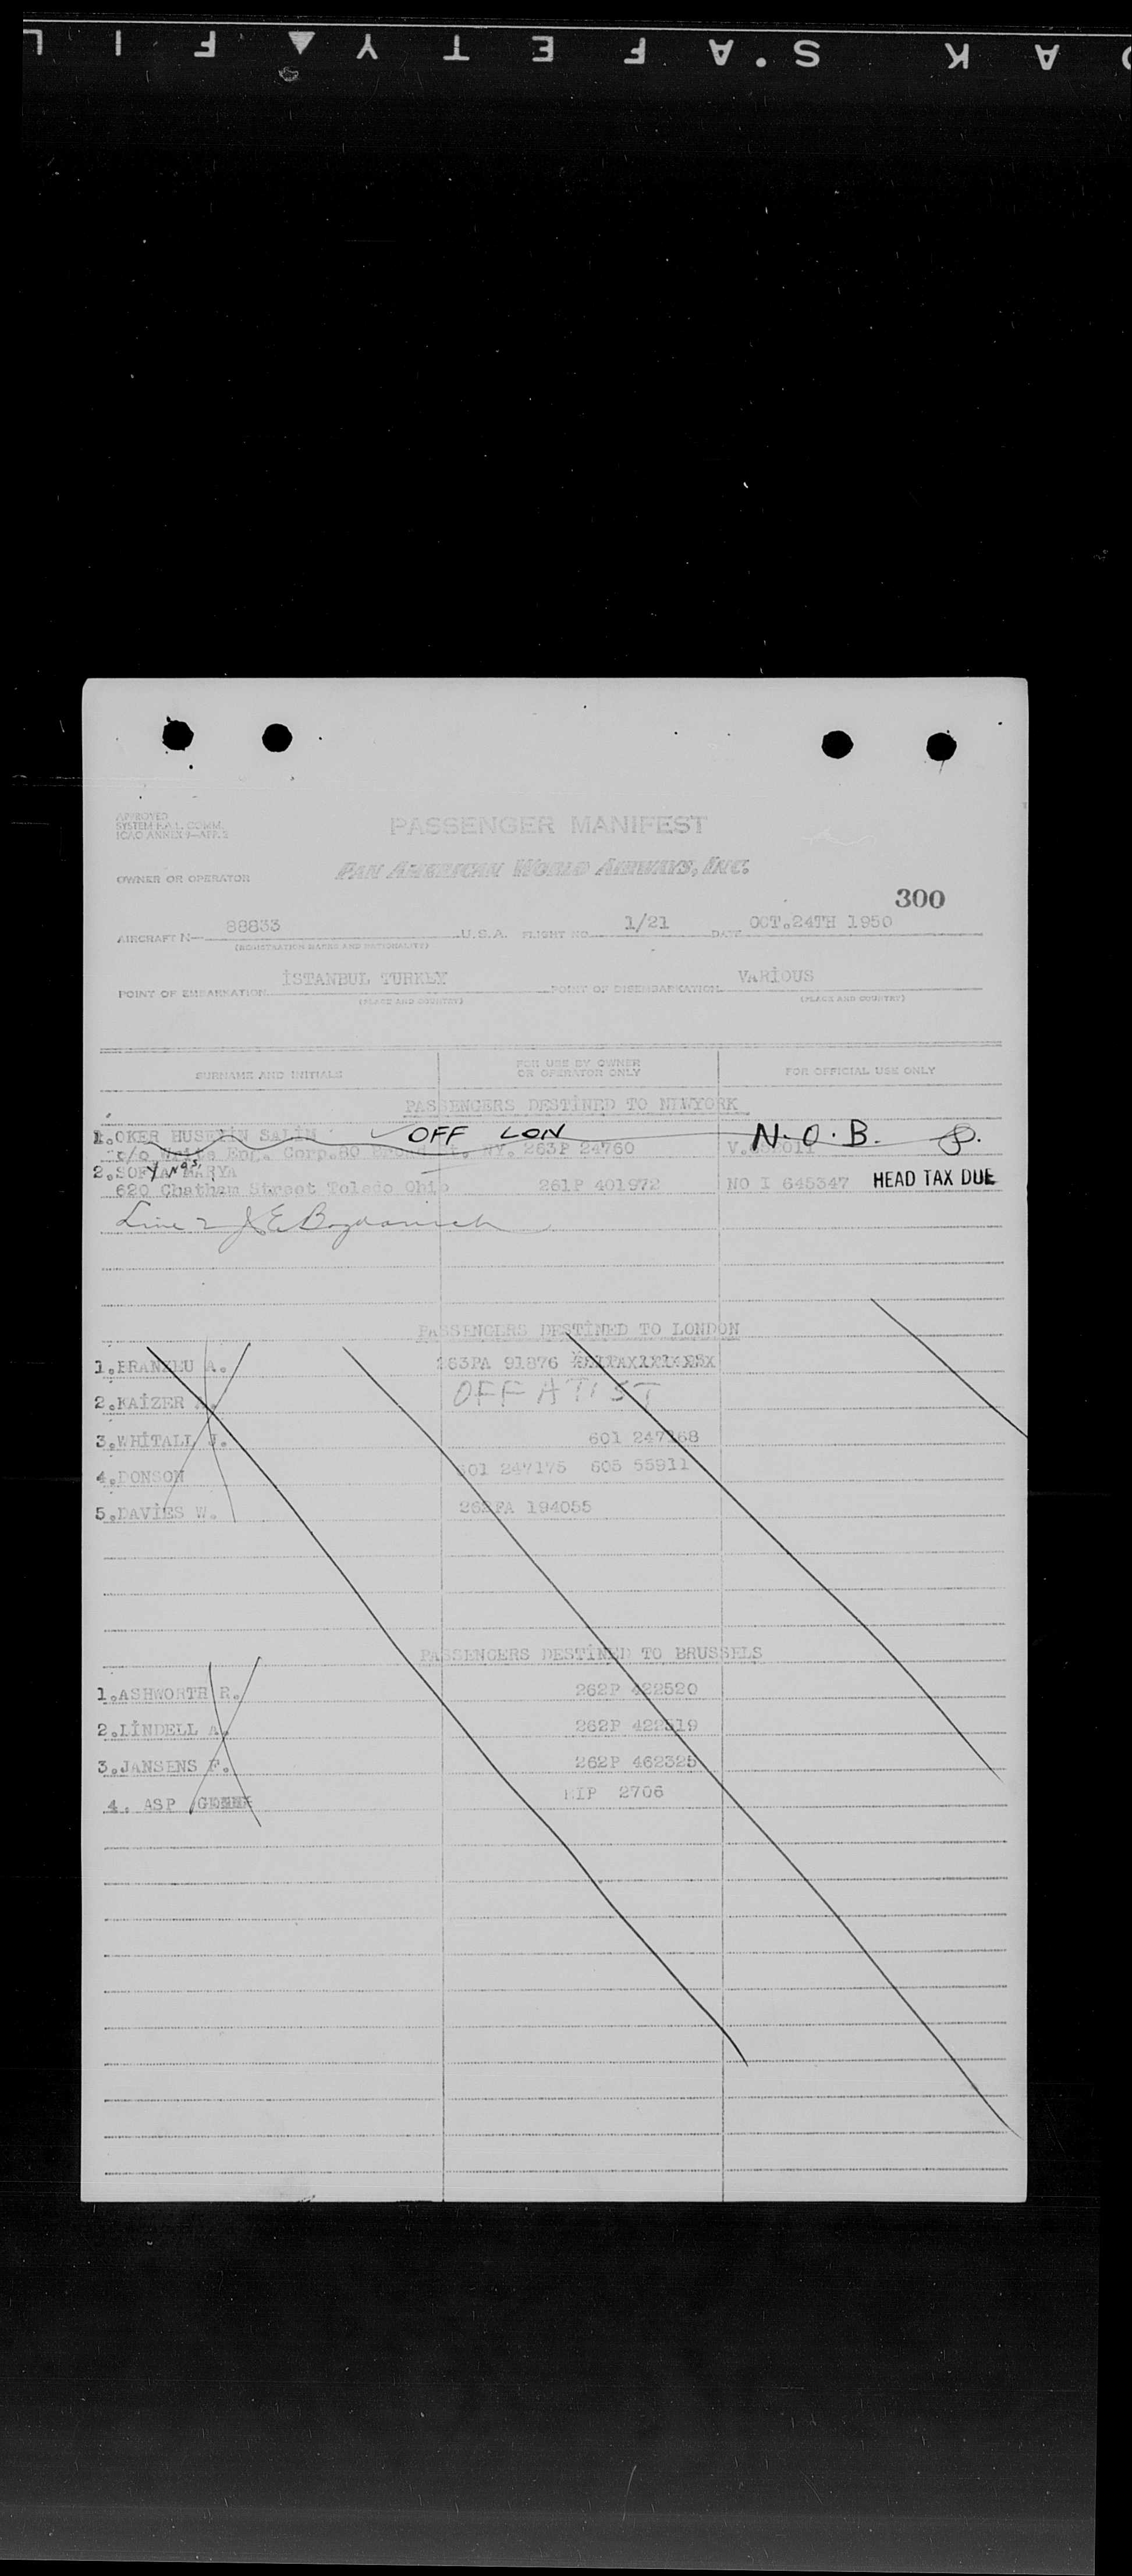 KODAK SAFETY FIL
APPROVED
SYSTEM F.A.L. COMM.
ICAO ANNEX 9—APP. 2
PASSENGER MANIFEST
OWNER OR OPERATOR
PAN AMERICAN WORLD AIRWAYS, INC.
300
AIRCRAFT N— 88833 U.S.A. FLIGHT NO. 1/21 DATE OCT.24TH 1950
(REGISTRATION MARKS AND NATIONALITY)
POINT OF EMBARKATION İSTANBUL TURKEY POINT OF DISEMBARKATION VARİOUS
(PLACE AND COUNTRY) (PLACE AND COUNTRY)
SURNAME AND INITIALS FOR USE BY OWNER OR OPERATOR ONLY FOR OFFICIAL USE ONLY
PASSENGERS DESTİNED TO NEWYORK
1.OKER HUSEYİN SALİM OFF LON N.O.B.
c/o White Eng. Corp.80 Broad St. NY. 263P 24760
2. MARYA
620 Chatham Street Toledo Ohio 261P 401972 NO I 645347 HEAD TAX DUE
Line 2
PASSENGERS DESTİNED TO LONDON
1. A. 263PA 91876
2.KAİZER OFF AT IST
3.WHİTALL J. 601 247168
4.DONSON 601 247175 605 55911
5.DAVİES W. 262PA 194055
PASSENGERS DESTİNED TO BRUSSELS
1.ASHWORTH R. 262P 422520
2.LİNDELL A. 262P 422519
3.JANSENS F. 262P 462325
4. ASP 2706